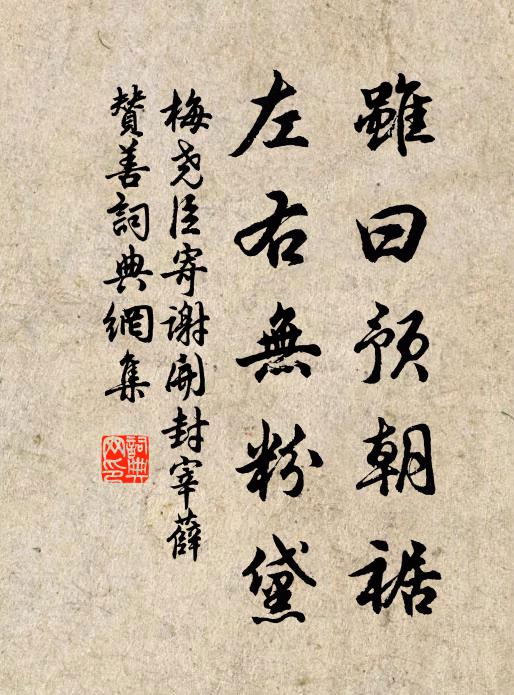 雖曰預朝裾
左右無粉黛
梅堯臣寄謝開封宰薛
贊善詞典網集
詞典
网印